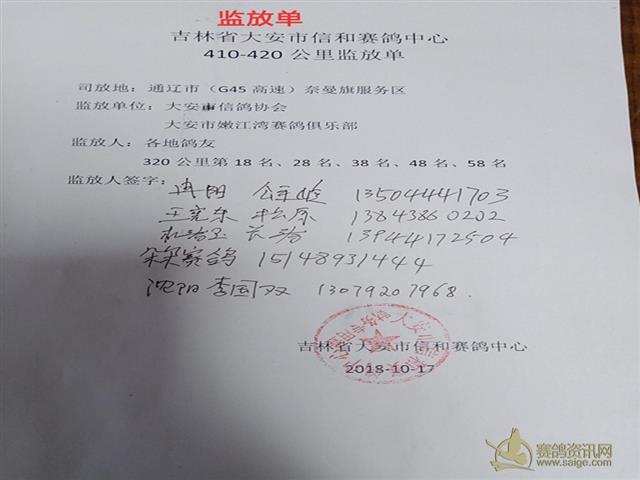 监放单
吉林省大安市信和赛鸽中心
410-420 公里监放单
司放地：通辽市（G45 高速）奈曼旗服务区
监放单位：大安市信鸽协会
大安市嫩江湾赛鸽俱乐部
监放人：各地鸽友
320 公里第 18 名、28 名、38 名、48 名、58 名
监放人签字：
13504441703
王宪东 松原 13843860202
长治 13944172504
赛鸽 15148931444
沈阳 李国双 13079207968.
吉林省大安市信和赛鸽中心
2018-10-17
赛鸽资讯网
www.saige.com